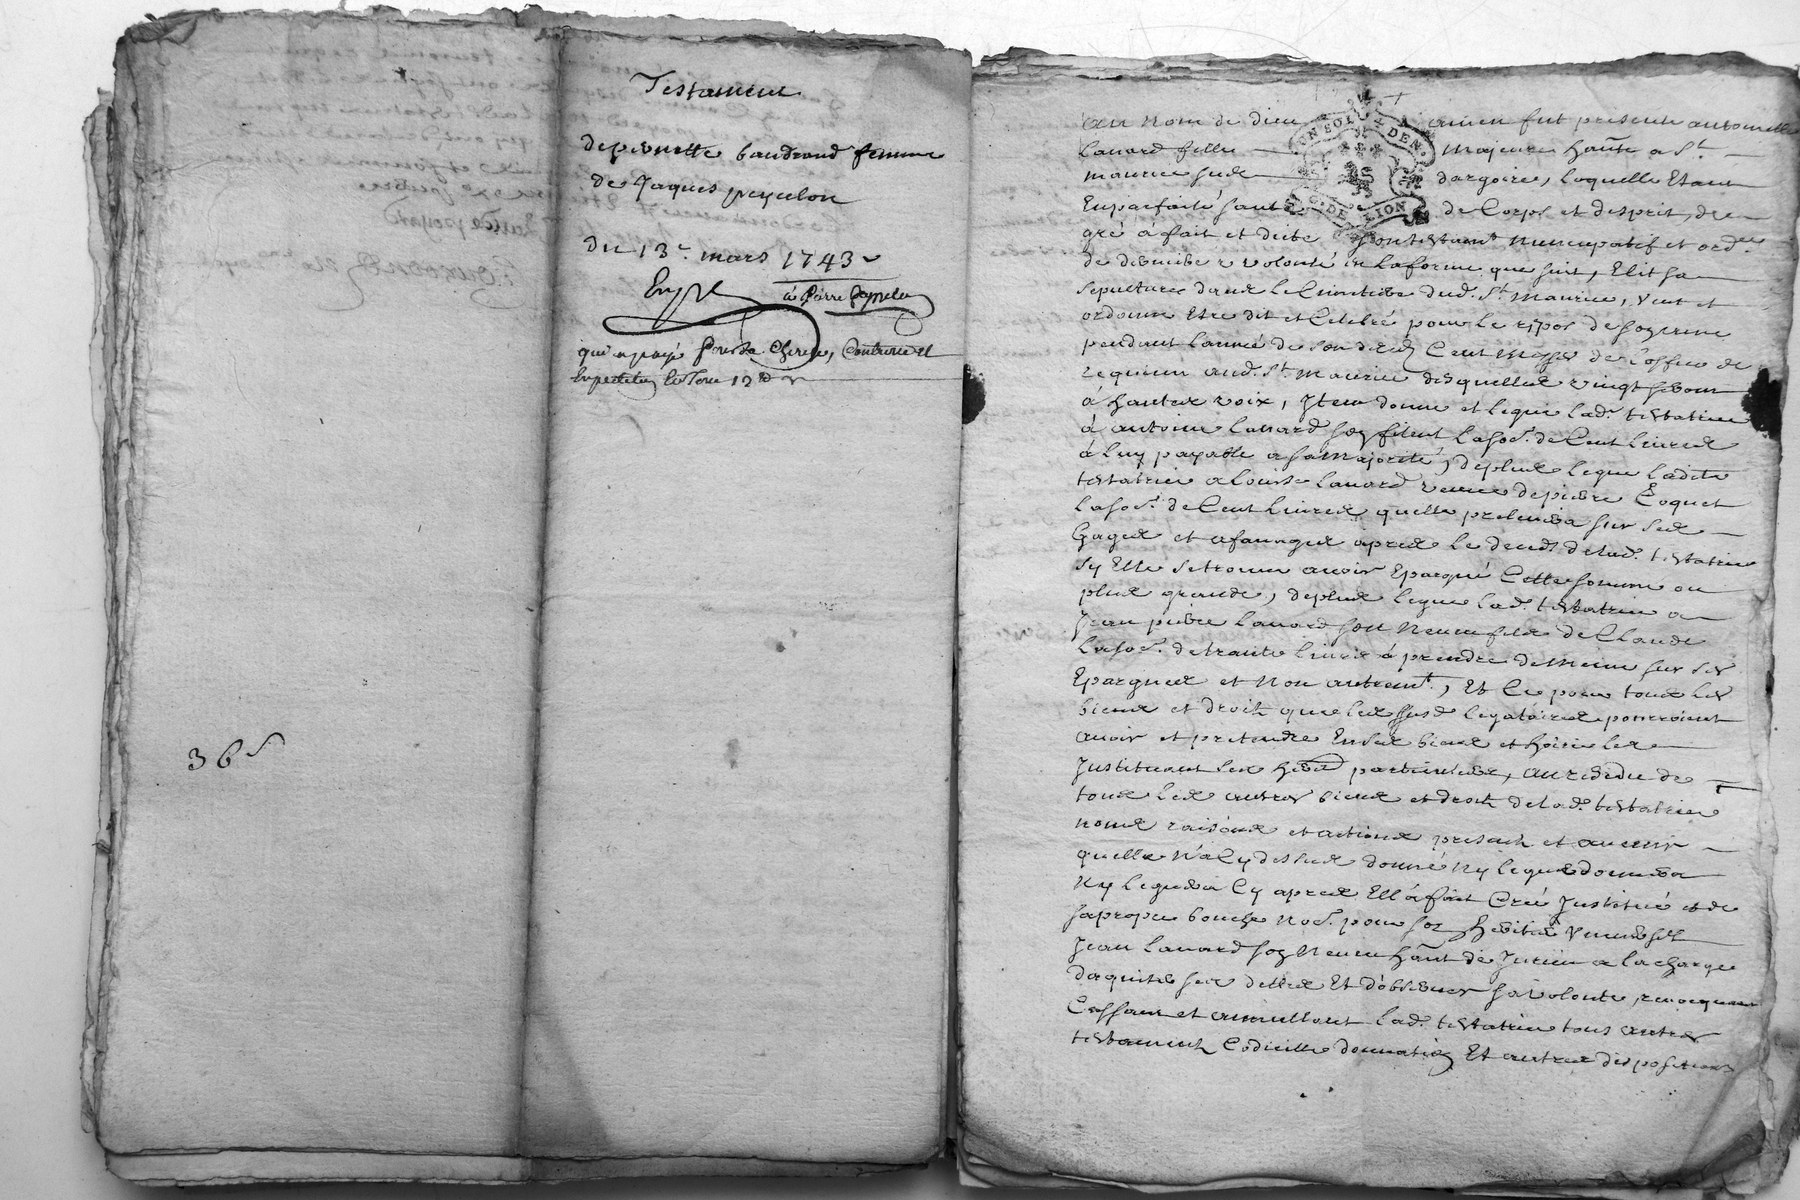 Testament
de pernette baudrand femme
de Jaques peyselon
Du 13e mars 1743
Exp
à Pierre
qui a payé pour la Controlle et
Expedition 12
36s
Au Nom de dieu amen fut presente antoinette
Lanard fille majeure hante a St
maurice sur dargoire, laquelle Etant
En parfaite santé de Corps et desprit, de
gré à fait et dicté son testamt Nuncupatif et ordce
de derniere volonté en la forme que suit, Elit sa
sepulture dans le Cimetiere dud. St Maurice, veut et
ordonne Etre dit et Celebré pour le repos de son ame
pendant lannée de son deces Cent Messes de l'office de
requiem aud. St Maurice desquelles vingt seront
à hautes voix, Item donne et legue lad. testatrice
à antoine Lanard son filleul la so. de Cent livres
à luy payable a sa Majorité, de plus legue ladite
testatrice a Louise Lanard veuve de pierre Coquet
la so. de Cent livres quelle prelevera sur ses
Gages et apres le deces de lad. testatrice
sy Elle se trouve avoir Epargné Cette somme ou
plus grande, de plus legue lad. testatrice a
Jean pierre Lanard son Neveu fils de Claude
la so. de trante livres à prendre de meme sur ses
Epargnes et Non autremt, Et Ce pour tous les
biens et droits que les susd legataires pourroient
avoir et pretendre En ses biens et hoirie les
Instituant ses herit particuliers, au residu de
tous les autres biens et droits de lad. testatrice
Noms raisons et actions presents et avenir
quelle N'a Cy dessus donné Ny legué donnera
Ny leguera Cy apres Ell'a fait Creé Institué et de
sa propre bouche No. pour son heritier Universel
Jean Lanard son Neveu hant de a la charge
daquiter ses dettes Et d'observer sa volonté, revoquant
Cassant et annullant lad. testatrice tous autres
testaments Codicille donnation Et autres dispositions